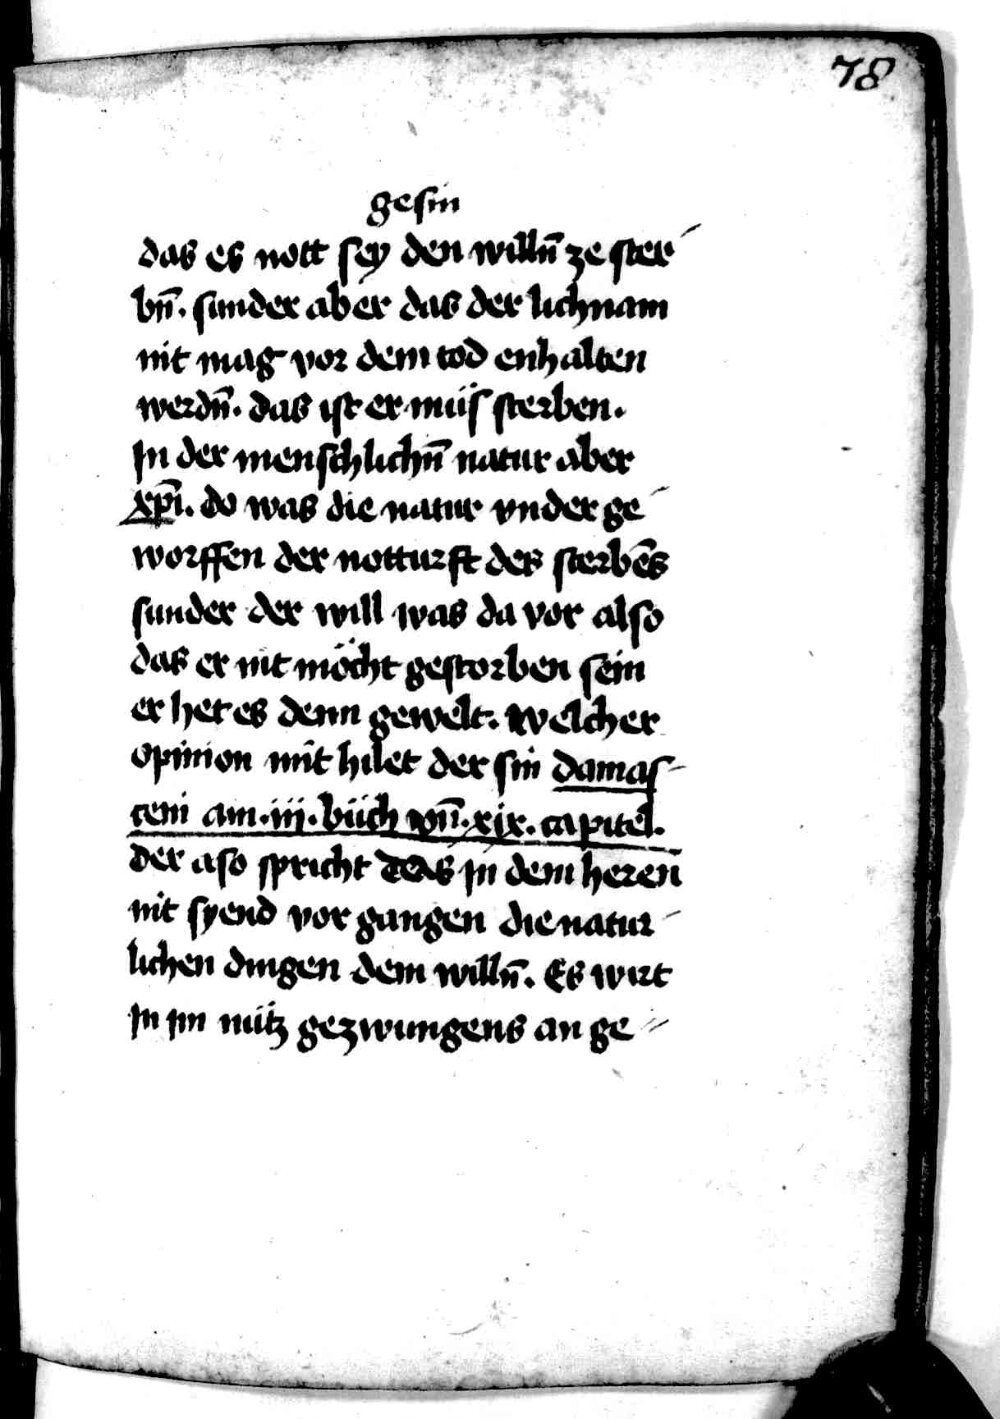 78
gesin
das es nott sey den willn̄ ze ster
bn̄. sunder aber das der lichnam
nit mag vor dem tod enhalten
werdn̄. das ist er müs sterben.
In der menschlichn̄ natur aber
xp̄i. do was die natur vnder ge
worffen der notturft des sterbēs
sunder der will was da vor also
das er nit möcht gestorben sein
er het es denn gewelt. Welcher
opinion mit hilet der sin damas
ceni am .iii. büch vn̄ .xix. capitel.
der also spricht Das in dem heren
nit syend vor gangen die natur
lichen dingen dem willn̄. Es wirt
in im nütz gezwungens an ge